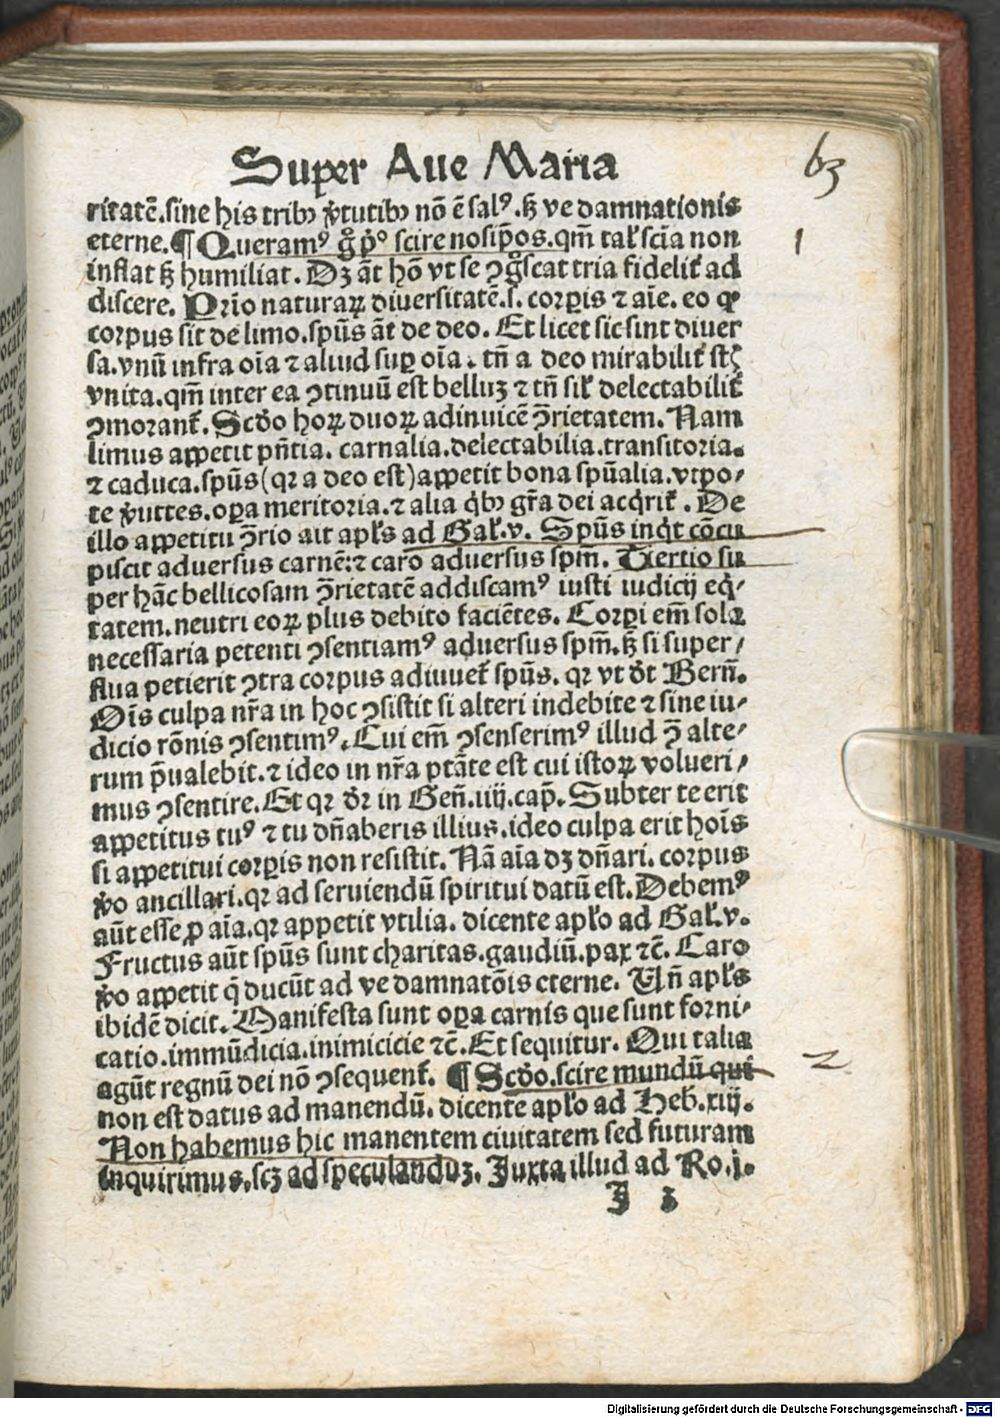 Super Aue Maria
63
ritatē.sine his tribꝰ v̓tutibꝰ nō ē salꝰ.sꝫ ve damnationis
eterne.¶ Queramꝰ gͦ pͦ scire nosip̄os.qm̄ tal̓ scīa non
1
inflat sꝫ humiliat. Dꝫ āt hō vt se ꝯgͦscat tria fidelit̓ ad
discere. Prīo naturaꝝ diuersitatē.s. corꝑis ⁊ aīe. eo ꝙ
corpus sit de limo.spūs āt de deo. Et licet sic sint diuer
sa.vnū infra oīa ⁊ aliud suꝑ oīa. tn̄ a deo mirabilit̓ st̄
vnita.qm̄ inter ea ꝯtinuū est belluꝫ ⁊ tn̄ sil̓ delectabilit̓
ꝯmorant̓. Scd̓o hoꝝ duoꝝ adinuicē ꝯ̄rietatem. Nam
limus appetit pn̄tia. carnalia.delectabilia.transitoria.
⁊ caduca.spūs(qꝛ a deo est)appetit bona spūalia.vtpo-
te v̓tutes.oꝑa meritoria.⁊ alia qͥbꝰ gr̄a dei acqͥrit̓. De
illo appetitu ꝯ̄rio ait apl̓s ad Gal̓.v. Spūs inqͥt cōcu
piscit aduersus carnē:⁊ caro aduersus spm̄. Tertio su
per hāc bellicosam ꝯ̄rietatē addiscamꝰ iusti iudicij eqͥ-
tatem.neutri eoꝝ plus debito faciētes. Corꝑi em̄ sola
necessaria petenti ꝯsentiamꝰ aduersus spm̄.sꝫ si super-
flua petierit ꝯtra corpus adiuuet̓ spūs. qꝛ vt d̓t Bern̄.
Oīs culpa nr̄a in hoc ꝯsistit si alteri indebite ⁊ sine iu-
dicio rōnis ꝯsentimꝰ. Cui em̄ ꝯsenserimꝰ illud ꝯ̄ alte-
rum p̄ualebit.⁊ ideo in nr̄a ptāte est cui istoꝝ volueri-
mus ꝯsentire. Et qꝛ d̓r in Gen̄.iiij.cap̄. Subter te erit
appetitus tuꝰ ⁊ tu dn̄aberis illius.ideo culpa erit hoīs
si appetitui corꝑis non resistit. Nā aīa dꝫ dn̄ari. corpus
v̓o ancillari.qꝛ ad seruiendū spiritui datū est. Debemꝰ
aūt esse ꝓ aīa.qꝛ appetit vtilia. dicente apl̓o ad Gal̓.v.
Fructus aūt spūs sunt charitas.gaudiū.pax ⁊c̄. Caro
v̓o appetit q̄ ducūt ad ve damnatōis eterne. Un̄ apl̓s
ibidē dicit. Manifesta sunt oꝑa carnis que sunt forni-
catio.immūdicia.inimicicie ⁊c̄. Et sequitur. Qui talia
agūt regnū dei nō ꝯsequent̓. ¶ Scd̓o.scire mundū qui
2
non est datus ad manendū. dicente apl̓o ad Heb.xiij.
Non habemus hic manentem ciuitatem sed futuram
inquirimus.scꝫ ad speculanduꝫ. Iuxta illud ad Ro.j.
I 3
Digitalisierung gefördert durch die Deutsche Forschungsgemeinschaft - DFG